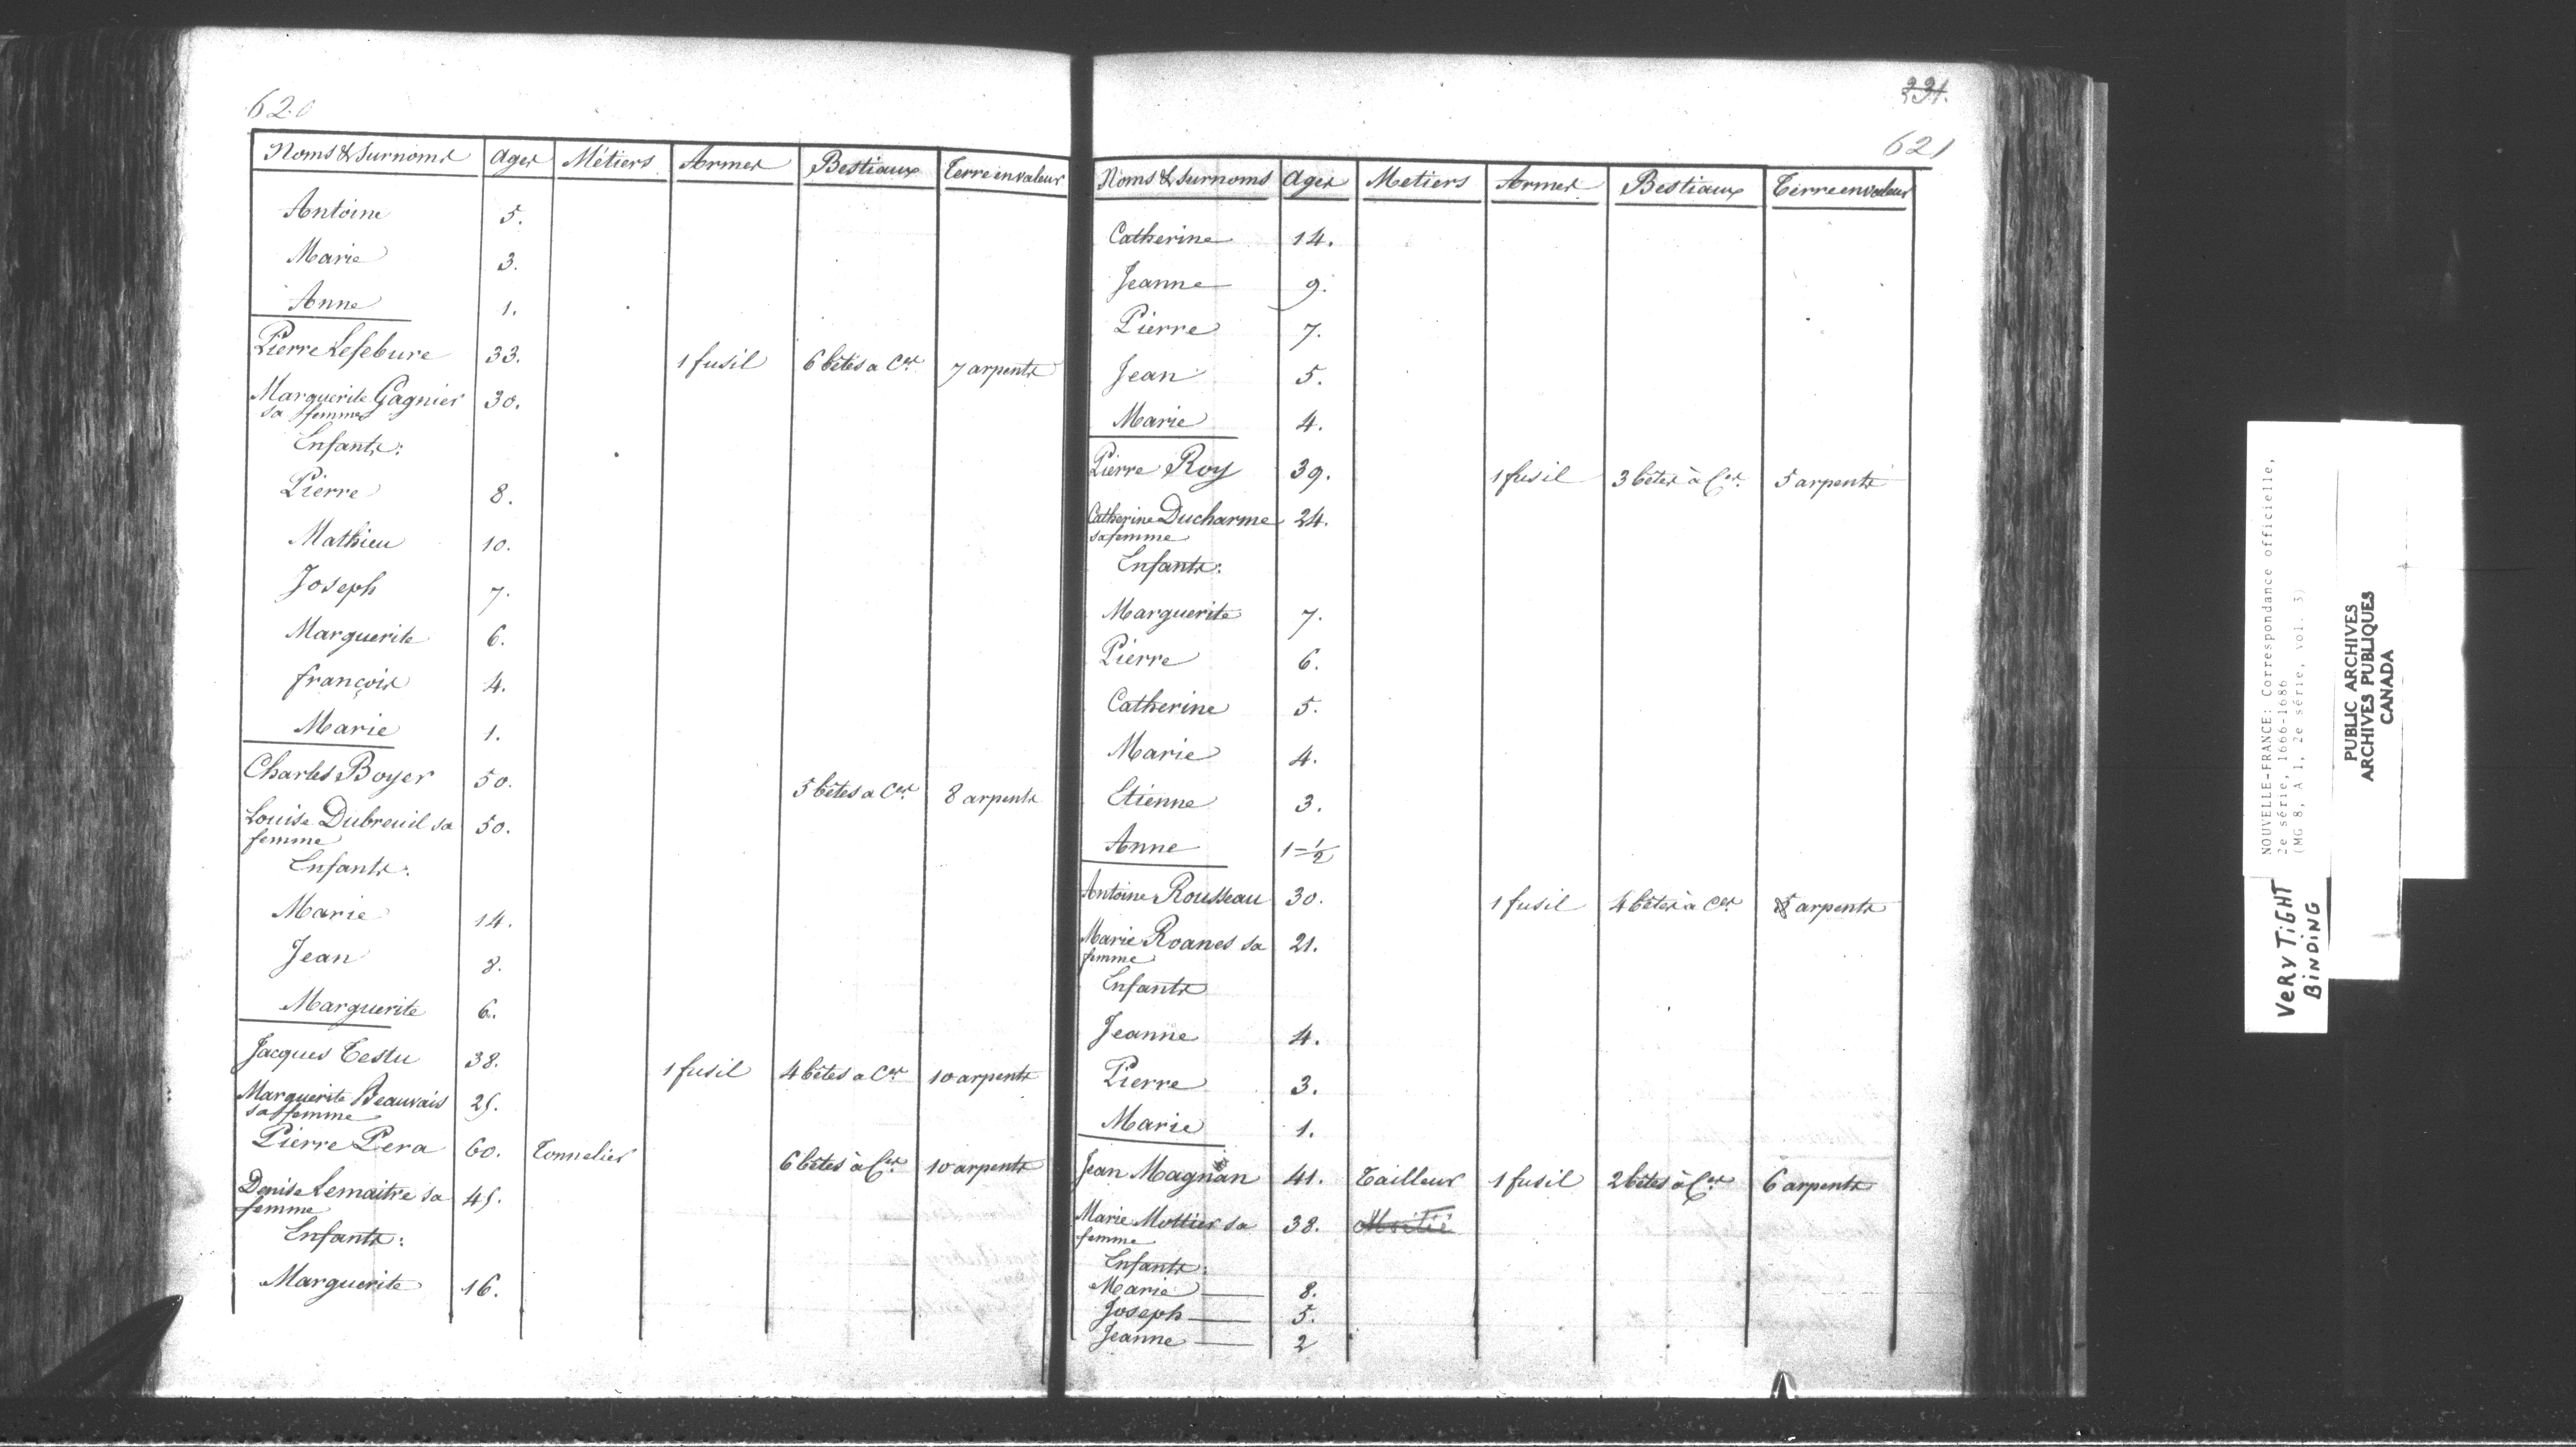 620
Noms & Surnoms Ages Métiers Armes Bestiaux Terre en valeur
Antoine 5.
Marie 3.
Anne 1.
Pierre Lefebure 33. 1 fusil 6 bêtes a Ces 7 arpents
Marguerite Gagnier 30.
sa femme
Enfants:
Pierre 8.
Mathieu 10.
Joseph 7.
Marguerite 6.
françois 4.
Marie 1.
Charles Boyer 50. 5 bêtes a Ces 8 arpents
Louise Dubreuil sa 50.
femme
Enfants:
Marie 14.
Jean 8.
Marguerite 6.
Jacques Testu 38. 1 fusil 4 bêtes a Ces 10 arpents
Marguerite Beauvais 25.
sa femme
Pierre Pera 60. Tonnelier 6 bêtes à Ces 10 arpents
Denise Lemaitre sa 45.
femme
Enfants:
Marguerite 16.
231.
621
Noms & Surnoms Ages Metiers Armes Bestiaux Terre en valeur
Catherine 14.
Jeanne 9.
Pierre 7.
Jean 5.
Marie 4.
Pierre Roy 39. 1 fusil 3 bêtes à Ces 5 arpents
Catherine Ducharme 24.
sa femme
Enfants:
Marguerite 7.
Pierre 6.
Catherine 5.
Marie 4.
Etienne 3.
Anne 1-1/2
Antoine Rousseau 30. 1 fusil 4 bêtes à Ces arpents
Marie Roanes sa 21.
femme
Enfants
Jeanne 4.
Pierre 3.
Marie 1.
Jean Magnan 41. Tailleur 1 fusil 2 bêtes à Ces 6 arpents
Marie Mottier sa 38. Moitié
femme
Enfants:
Marie 8.
Joseph 5.
Jeanne 2
NOUVELLE-FRANCE: Correspondance officielle,
2e série, 1666-1686
(MG 8, A 1, 2e série, vol. 3)
VERY TIGHT
BINDING
PUBLIC ARCHIVES
ARCHIVES PUBLIQUES
CANADA